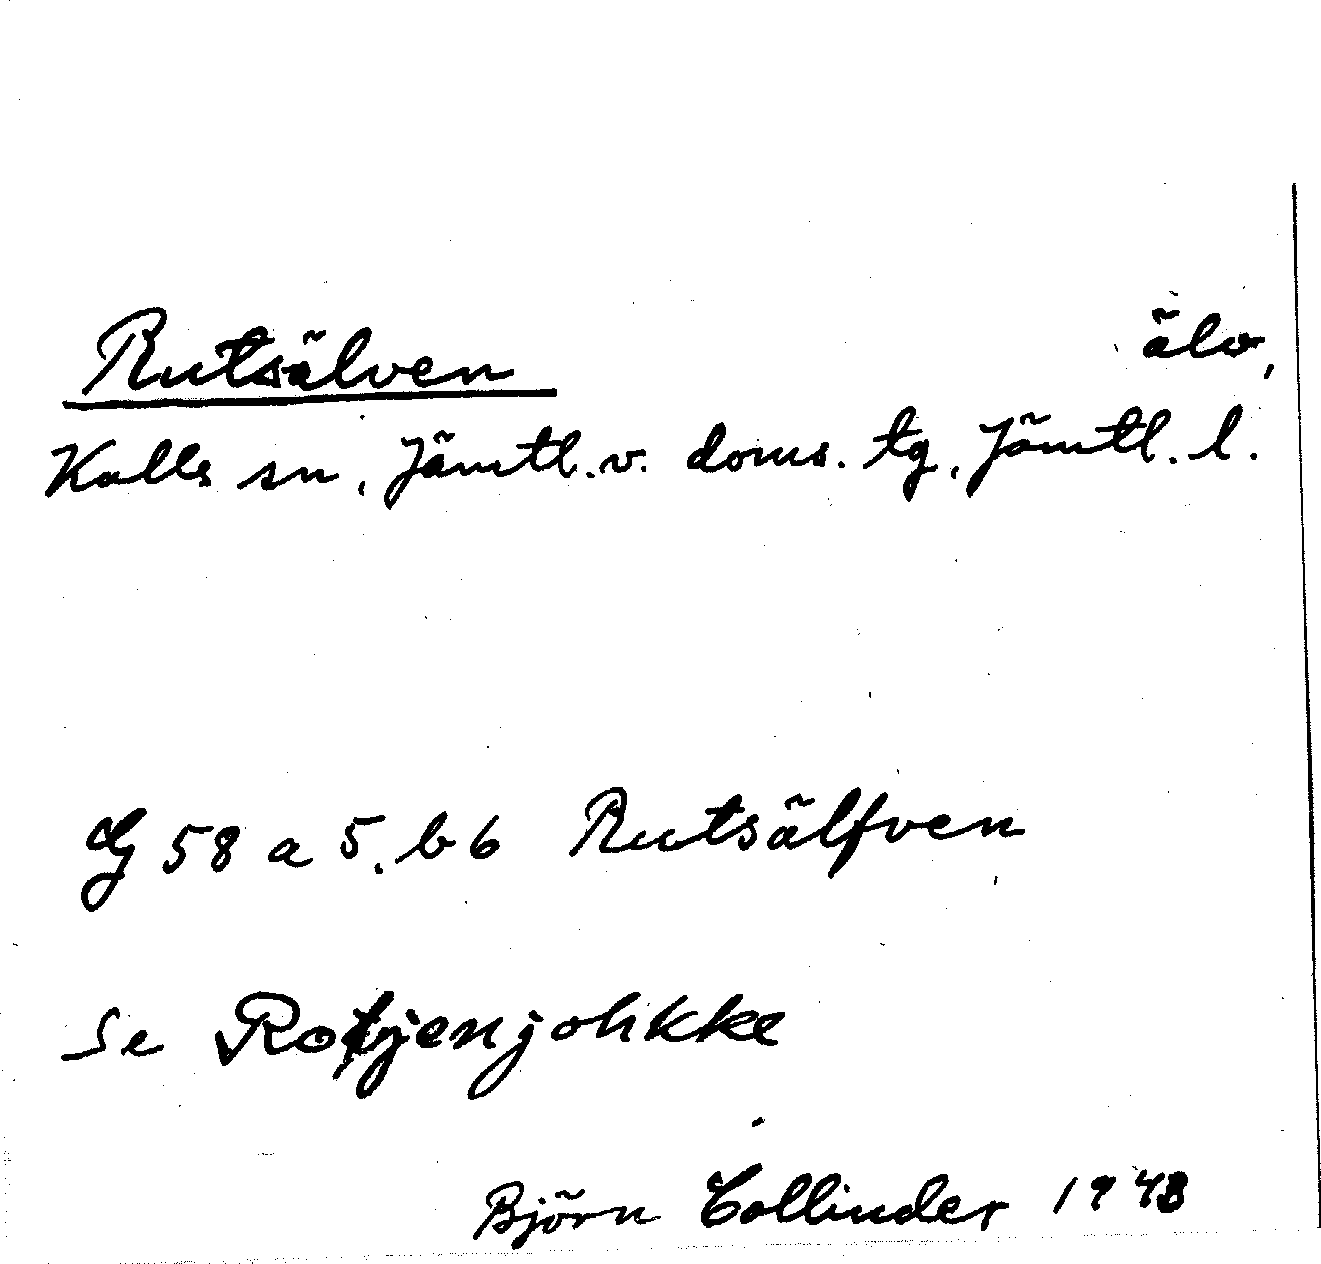 Rutsälven älv,
Kalls sn, Jämtl. v. doms. tg, Jämtl. l.
G 58 a 5. b 6 Rutsälfven
Se Rotjenjohkke
Björn Collinder 1943